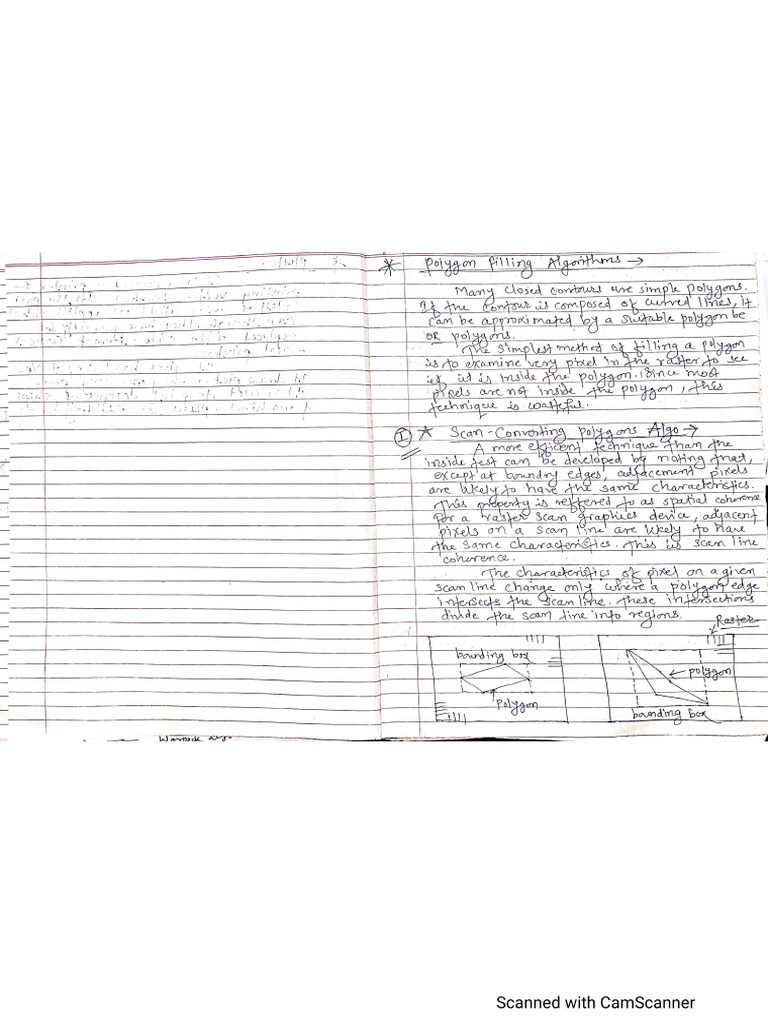 * Polygon filling Algorithms →
Many closed contours are simple polygons.
If the contour is composed of curved lines, it
can be approximated by a suitable polygon be
or polygons.
The simplest method of filling a polygon
is to examine very pixel in the raster to see
if it is inside the polygon. Since most
pixels are not inside the polygon, this
technique is wasteful.
I * Scan-Converting polygons Algo →
A more efficent technique than the
inside test can be developed by noting that,
except at boundry edges, adjacement pixels
are likely to have the same characteristics.
This property is reffered to as spatial coherence
for a raster scan graphics device, adjacent
pixels on a scan line are likely to have
the same characteristics. This is scan line
coherence.
The characteristics of pixel on a given
scan line change only where a polygon edge
intersects the scan line. These intersections
divide the scan line into regions.
Raster
bounding box
polygon
polygon
bounding box
Warnock
Scanned with CamScanner